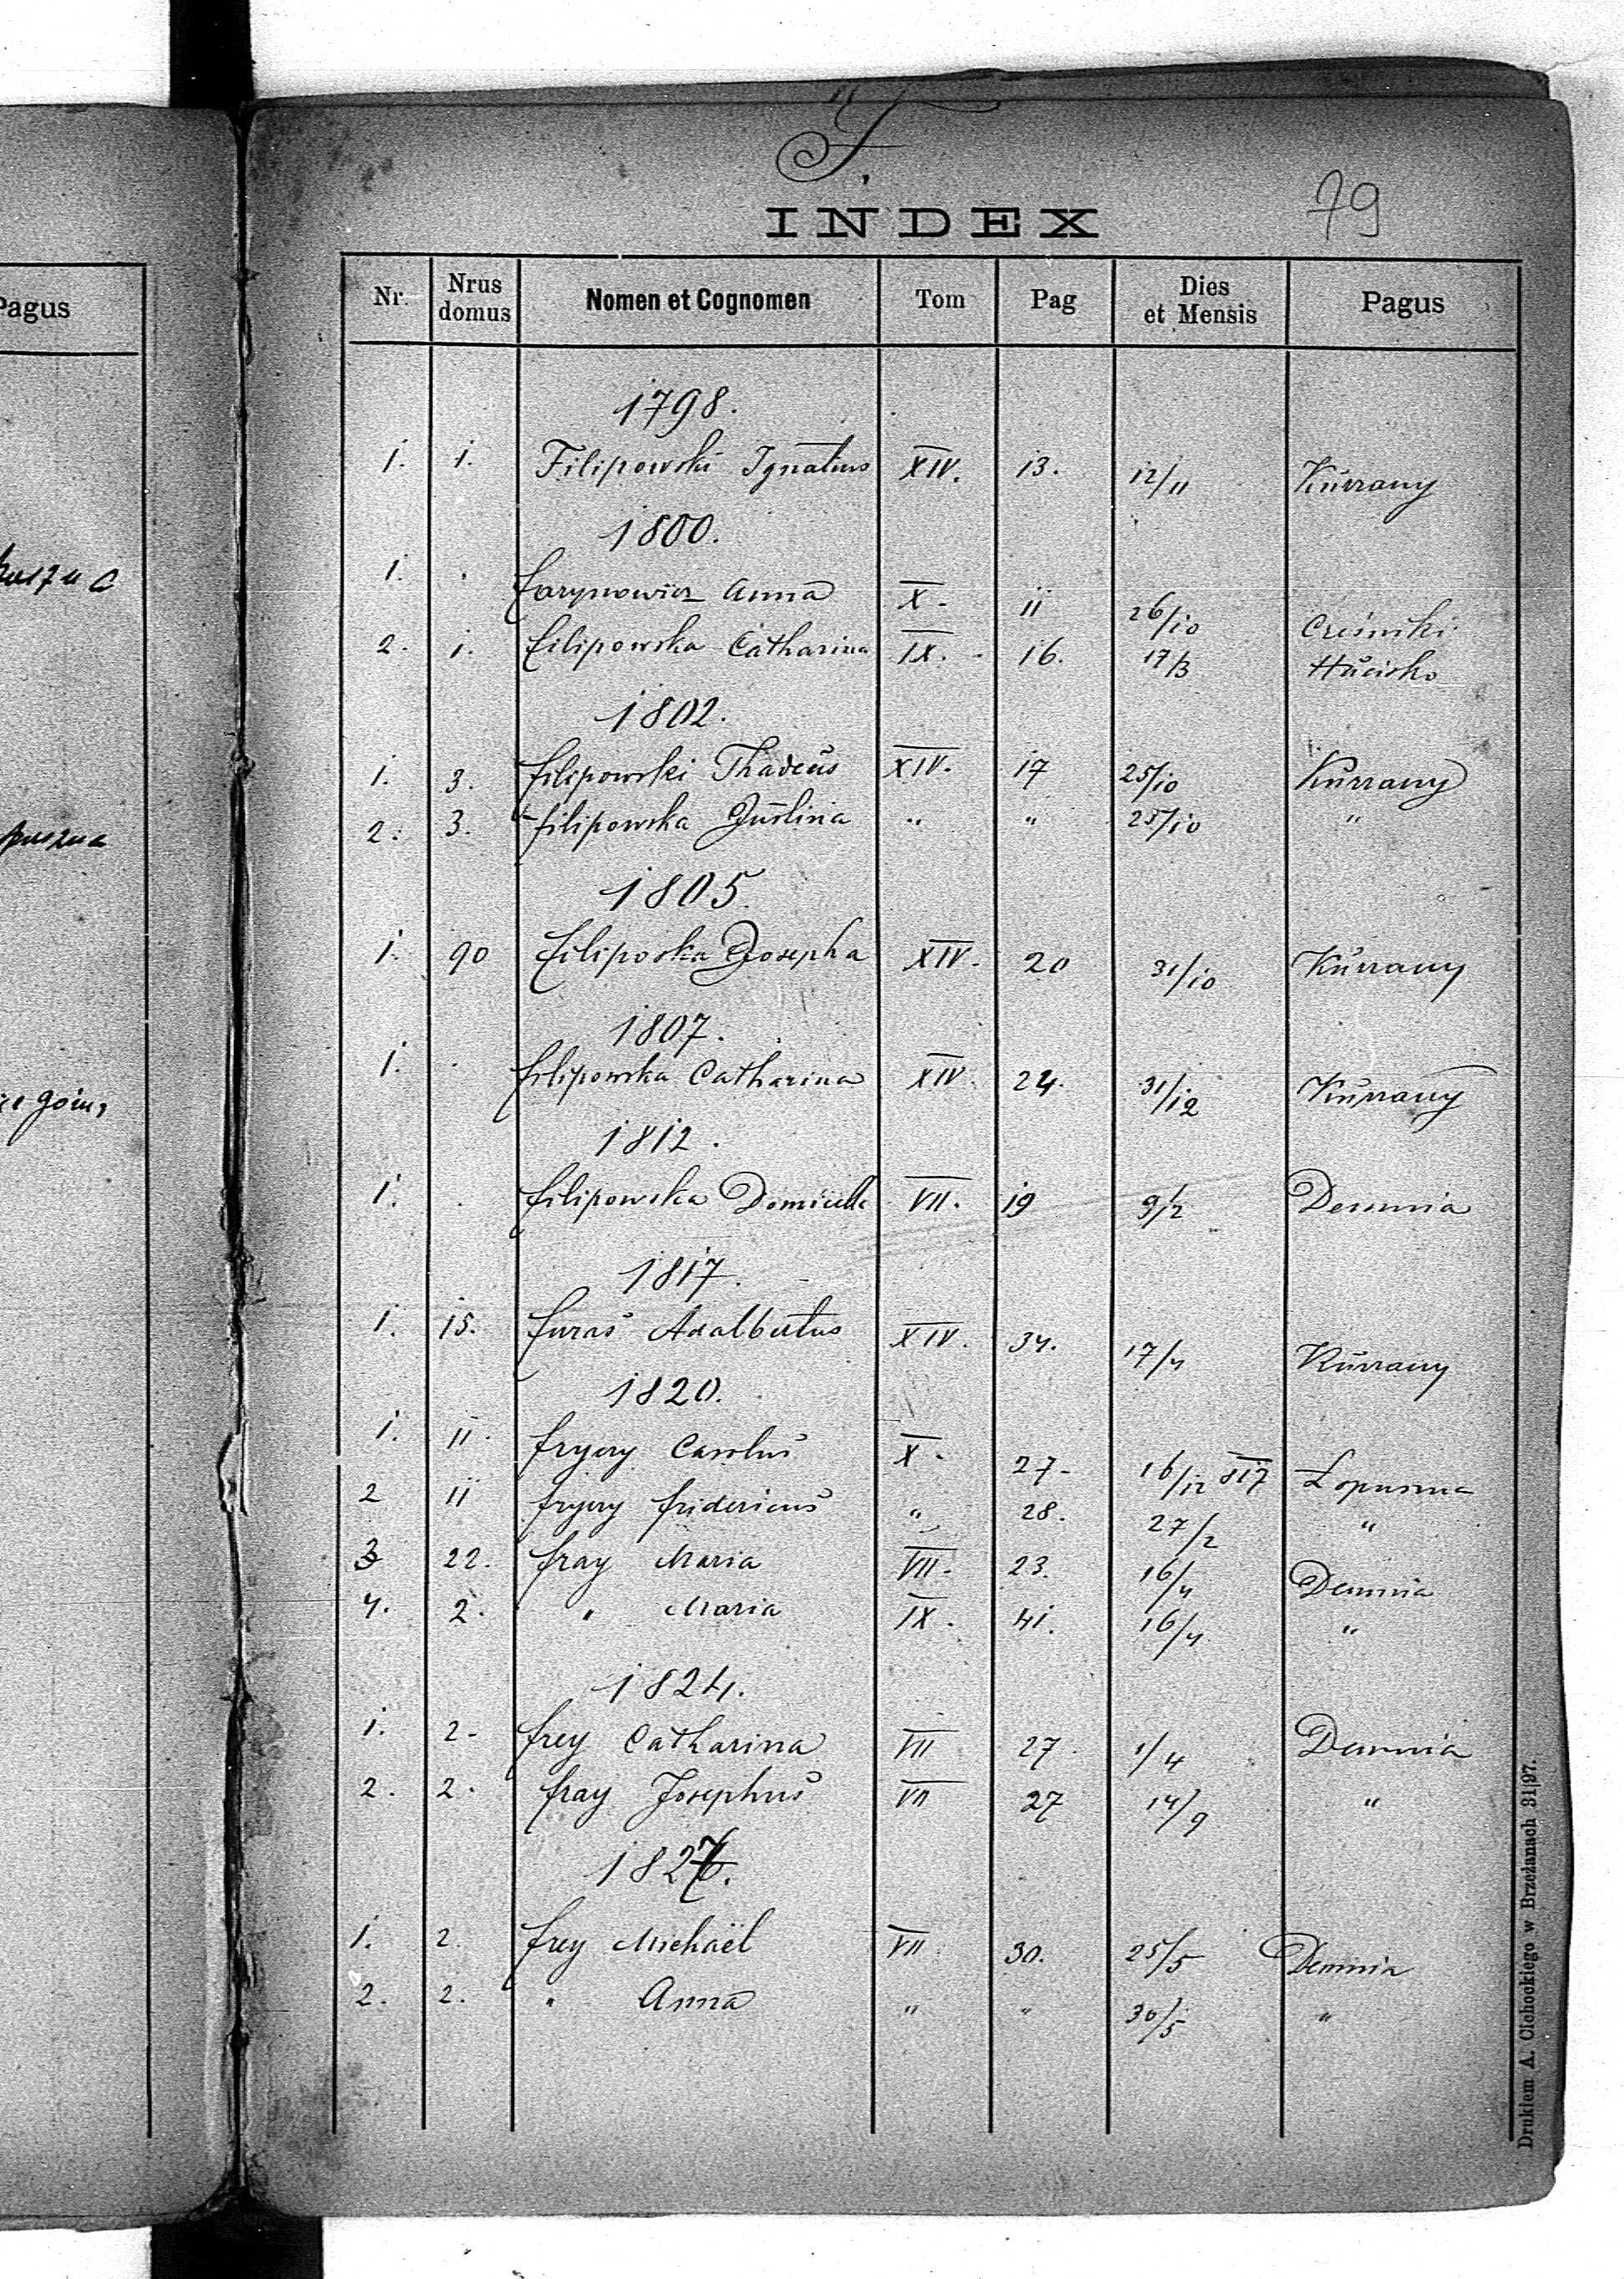 Pagus
F.
INDEX
79
Nr. Nrus domus Nomen et Cognomen Tom Pag Dies et Mensis Pagus
1798.
1. 1. Filipowski Ignatius XIV. 13. 12/11 Kurrany
1800.
1. Farynowicz Anna X. 11 26/10 Cześniki
2. 1. Filipowska Catharina IX. 16. 17/3 Hucisko
1802.
1. 3. Filipowski Thadeus XIV. 17 25/10 Kurrany
2. 3. Filipowska Justina " " 25/10 "
1805.
1. 90 Filiposka Josepha XIV. 20 31/10 Kurrany
1807.
1. Filipowska Catharina XIV. 24. 31/12 Kurrany
1812.
1. Filipowska Domicella VII. 19 9/2 Demnia
1817.
1. 15. Furas Adalbertus XIV. 34. 17/4 Kurrany
1820.
1. 11. Carolus X. 27. 16/12 817 Lopuszna
2 11 Fridericus " 28. 27/2 "
3 22. Fray Maria VII. 23. 16/4 Demnia
4. 2. " Maria IX. 41. 16/4 "
1824.
1. 2. Frey Catharina VII 27 1/4 Demnia
2. 2. Fray Josephus VII 27 14/9 "
1827.
1. 2. Frey Michaël VII 30. 25/5 Demnia
2. 2. " Anna " " 30/5 "
Drukiem A. Cichockiego w Brzeżanach 31|97.